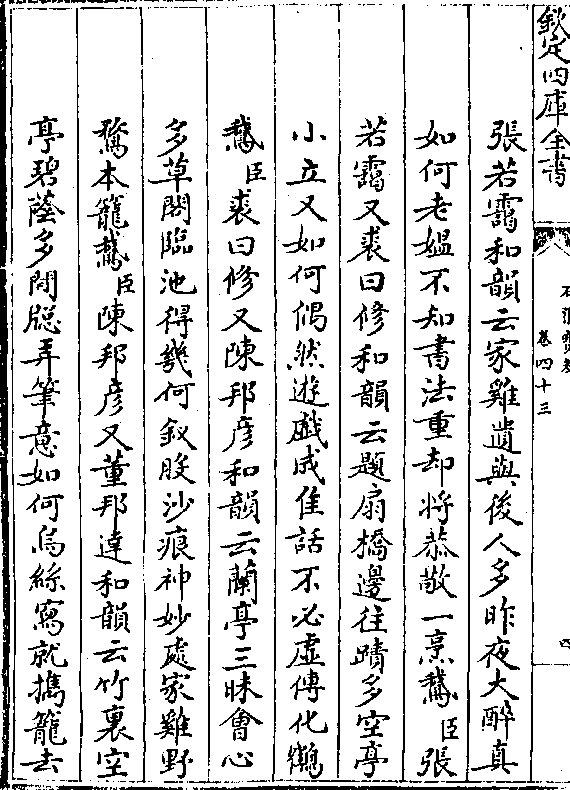 欽定四庫全書
石渠寶笈
卷四十三
四
張若靄和韻云家雞遺與後人多昨夜大醉真
如何老媪不知書法重却將恭敬一烹鵝臣張
若靄又裘曰修和韻云題扇橋邊往蹟多空亭
小立又如何偶然遊戲成佳話不必虚傳化鶴
鵝臣裘曰修又陳邦彦和韻云蘭亭三昧會心
多草閣臨池得幾何釵股沙痕神妙處家雞野
鶩本籠鵝臣陳邦彦又董邦達和韻云竹裏空
亭碧蔭多閒牕弄筆意如何烏絲寫就攜籠去